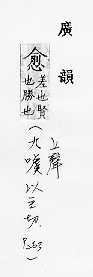 廣韻
愈
差也賢
也勝也
(上聲
九麌以主切